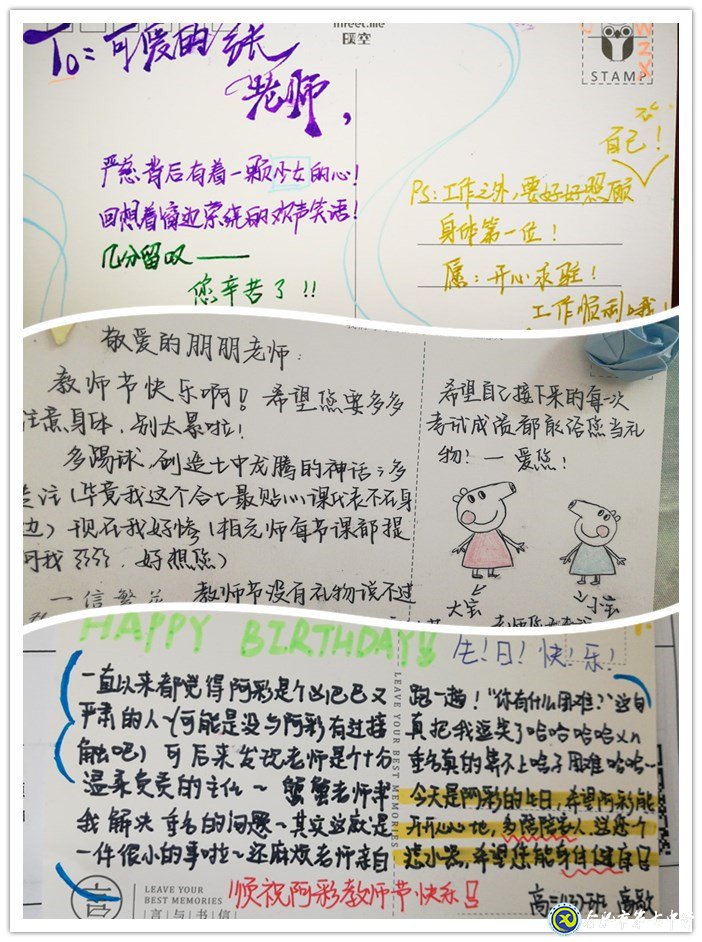 To：可爱的张
老师，
严慈背后有着一颗少女的心！
回想着窗边系统的欢声笑语！
几分留叹——
您辛苦了！！
STAMP
自己！
PS：工作之外，要好好照顾
身体第一位！
愿：开心永驻！
工作顺利哦！
敬爱的朋朋老师：
教师节快乐啊！希望您要多多
注意身体，别太累啦！
多踢球，创造七中龙腾的神话；多
关注（毕竟我这个合七最贴心课代表不在身
边）现在我好惨（相元师每节课都提
问我 好想您）
一信繁花 教师节没有礼物说不过
希望自己接下来的每一次
考试成绩都能给您当礼
物！— 爱您！
大宝
小宝
HAPPY BIRTHDAY!!
生！日！快！乐！
一直以来都觉得阿彩是个凶巴巴又
严肃的人~（可能是没与阿彩有过接
触吧）可后来发现老师是个十分
温柔负责的主任~ 蟹蟹老师帮
我解决重名的问题~其实这就是
一件很小的事啦~还麻烦老师亲自
跑一趟！“你有什么困难？”这句
真把我逗笑了哈哈哈哈xn
重名真的算不上啥子困难哈哈~
今天是阿彩的生日，希望阿彩能
开开心心地，多陪陪家人，
希望您能身体健康！
LEAVE YOUR BEST MEMORIES
LEAVE YOUR
BEST MEMORIES
言与书信
顺祝阿彩教师节快乐！
合肥市第七中学